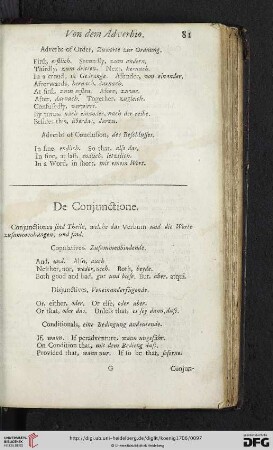 Von dem Adverbio. 81
Adverbs of Order, Zuworte zur Ordnung.
First, erstlich. Secondly, zum andern.
Thirdly, zum dritten. Next, hernach.
In a croud, im Gedränge. Asunder, von einander.
Afterwards, hernach, darnach.
At first, zum ersten. Afore, zuvor.
After, darnach. Together, zugleich.
Confusedly, verwirrt.
By turns, nach einander, nach der reihe.
Besides this, überdas, daran.
Adverbs of Conclusion, des Beschlusses.
In fine, endlich. So that, also das,
In fine, at last, endlich, letzlich.
In a Word, in short, mit einem Wort.
De Conjunctione.
Conjunctiones sind Theile, welche das Verbum und die Worte
zusammenhängen, und sind.
Copulatives, Zusammenbindende.
And, und. Also, auch
Neither, nor, weder, noch. Both, beyde.
Both good and bad, gut und böse. But, aber, atqui.
Disjunctives, Voneinanderfügende.
Or, either, oder. Or else, oder aber.
Or that, oder das. Unless that, es sey dann, daß.
Conditionals, eine Bedingung andeutende.
If, wann. If peradventure, wann ungefähr.
On Condition that, mit dem Beding daß.
Provided that, wann nur. If to be that, soferne.
G Conjun-
UNIVERSITÄTS-
BIBLIOTHEK
HEIDELBERG
http://digi.ub.uni-heidelberg.de/diglit/koenig1706/0097
© Universitätsbibliothek Heidelberg